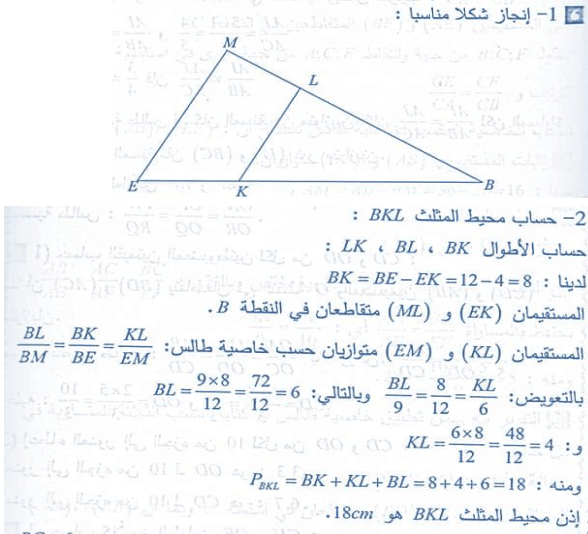 1- إنجاز شكلا مناسبا :
M
L
E
K
B
2- حساب محيط المثلث BKL :
حساب الأطوال BK ، BL ، LK :
لدينا : BK = BE − EK = 12 − 4 = 8
المستقيمان (EK) و (ML) متقاطعان في النقطة B .
المستقيمان (KL) و (EM) متوازيان حسب خاصية طالس: BL/BM = BK/BE = KL/EM
بالتعويض: BL/9 = 8/12 = KL/6 وبالتالي: BL = 9×8/12 = 72/12 = 6
و: KL = 6×8/12 = 48/12 = 4
ومنه : P_BKL = BK + KL + BL = 8 + 4 + 6 = 18
إذن محيط المثلث BKL هو 18cm.